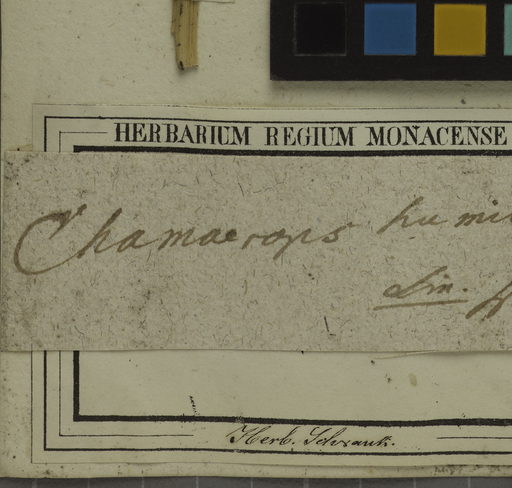 HERBARIUM REGIUM MONACENSE
Chamaerops humi
Lin.
Herb. Schrank.